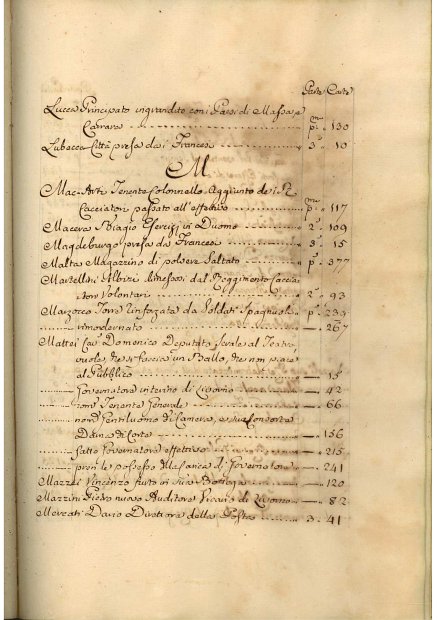 Parte Carte
Lucca Principato ingrandito con i Paesi di Massa e
Carrara p.ª 130
Lubecca Città presa dai Francesi 3 10
M
Mac-Arti Tenente Colonnello Aggiunto de i R.
Cacciatori passato all'effettivo p.ª 117
Macera Biagio Esercizj in Duomo 2.ª 109
Magdeburgo presa da Francesi 3.ª 15
Malta Magazzino di polvere saltato p.ª 377
Martellini Albizi dal Reggimento Caccia
tori Volontari 2.ª 93
Marzocco Torre rinforzata da Soldati Spagnuoli p.ª 239
rimodernato 267
Mattei Cav. Domenico Deputato serale al Teatro
vuole, che si faccia un Ballo, che non piace
al Pubblico 15
Governatore interino di Livorno 42
nom. Tenente Generale 66
nom. Gentiluomo di Camera, e sua Consorte
Dama di Corte 156
fatto Governatore effettivo 215
prende possesso della carica di Governatore 241
Mazzei Vincenzo furto in sua Bottega 120
Mazzini Pietro nuovo Auditore Vicario di Livorno 82
Mercati Dario Direttore della Posta 3 41